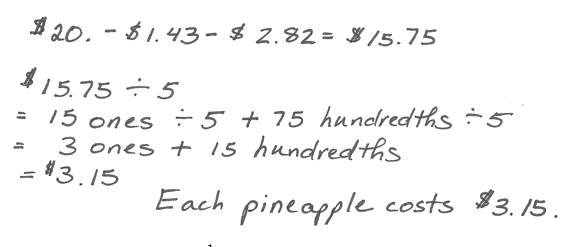 $20. - $1.43 - $2.82 = $15.75
$15.75 ÷ 5
= 15 ones ÷ 5 + 75 hundredths ÷ 5
= 3 ones + 15 hundredths
= $3.15
Each pineapple costs $3.15.